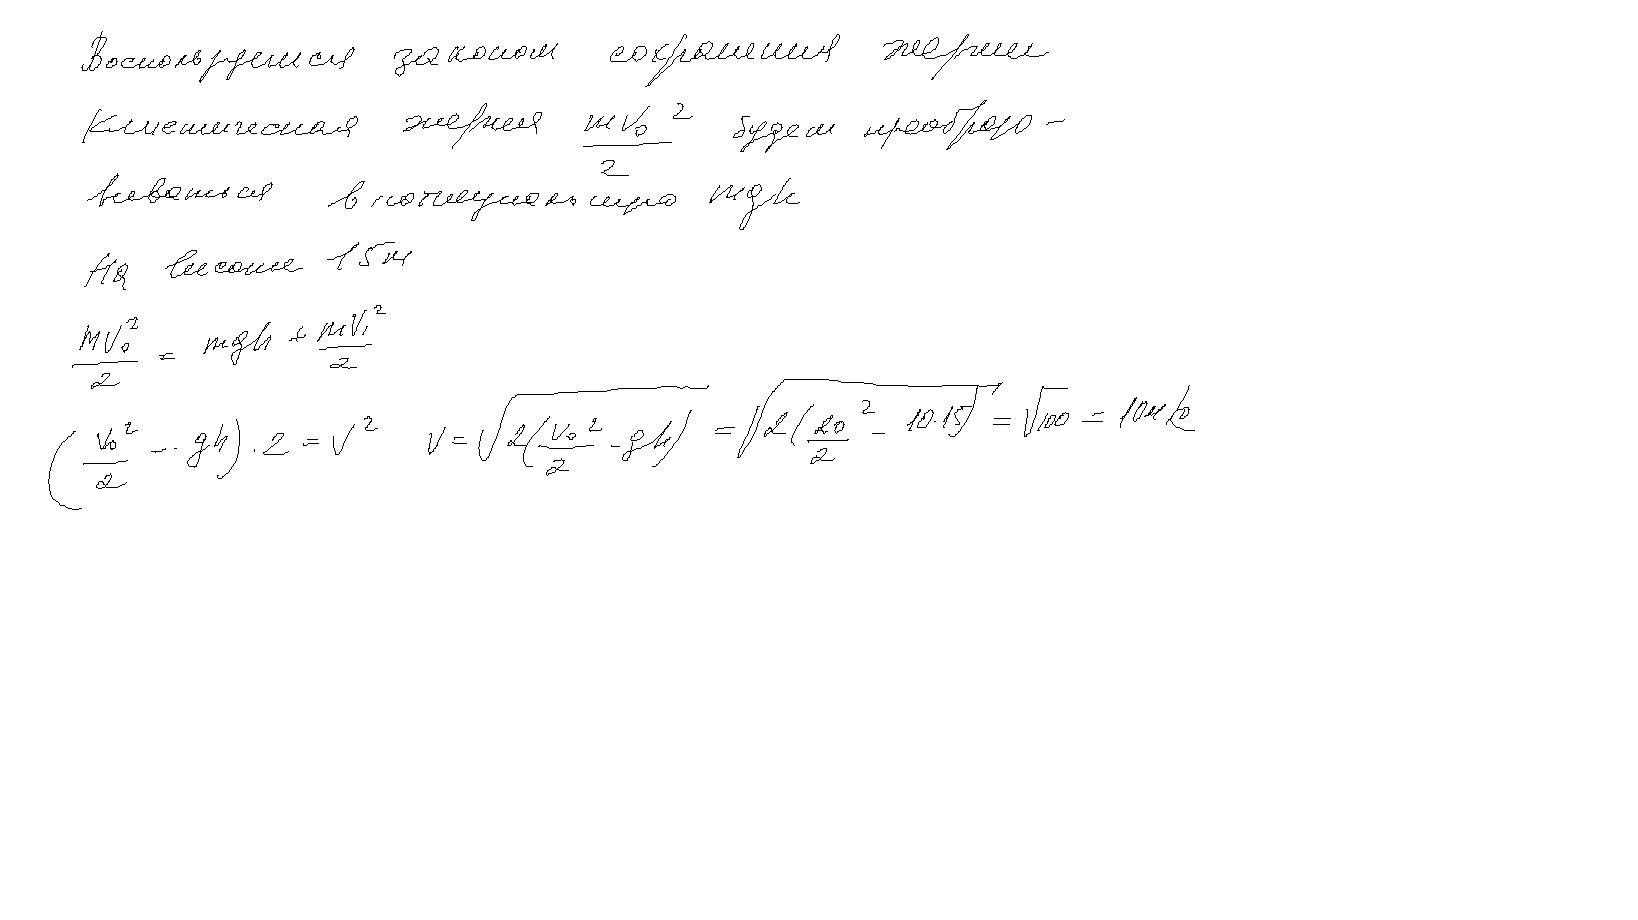 Воспользуемся законом сохранения энергии
Кинетическая энергия mV₀²/2 будет преобразо-
вываться в потенциальную mgh
На высоте 15м
mV₀²/2 = mgh + mV₁²/2
(V₀²/2 - gh) · 2 = V² V = √(2(V₀²/2 - gh)) = √(2(20²/2 - 10·15)) = √100 = 10м/с